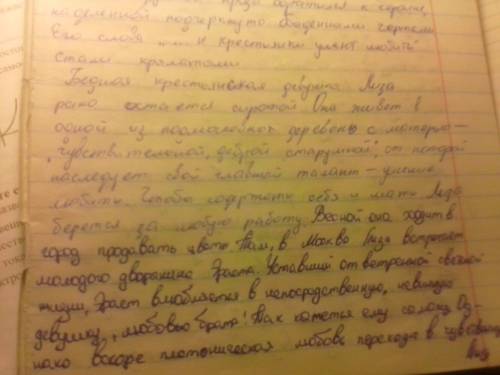 обратился к героине,
наделенной подчеркнуто обыденными чертами
Его слова и крестьянки умеют любить
стали крылатыми
Бедная крестьянская девушка Лиза
рано остается сиротой Она живет в
одной из подмосковных деревень с матерью —
"чувствительной, доброй старушкой", от которой
наследует свой главный талант — умение
любить. Чтобы содержать себя и мать Лиза
берется за любую работу. Весной она ходит в
город продавать цветы Там, в Москве Лиза встречает
молодого дворянина Эраста. Уставший от ветренной светской
жизни, Эраст влюбляется в непосредственную, невинную
девушку, любовью брата! Так кажется ему самому Од-
нако вскоре платоническая любовь переходит в чувственную
Лиз